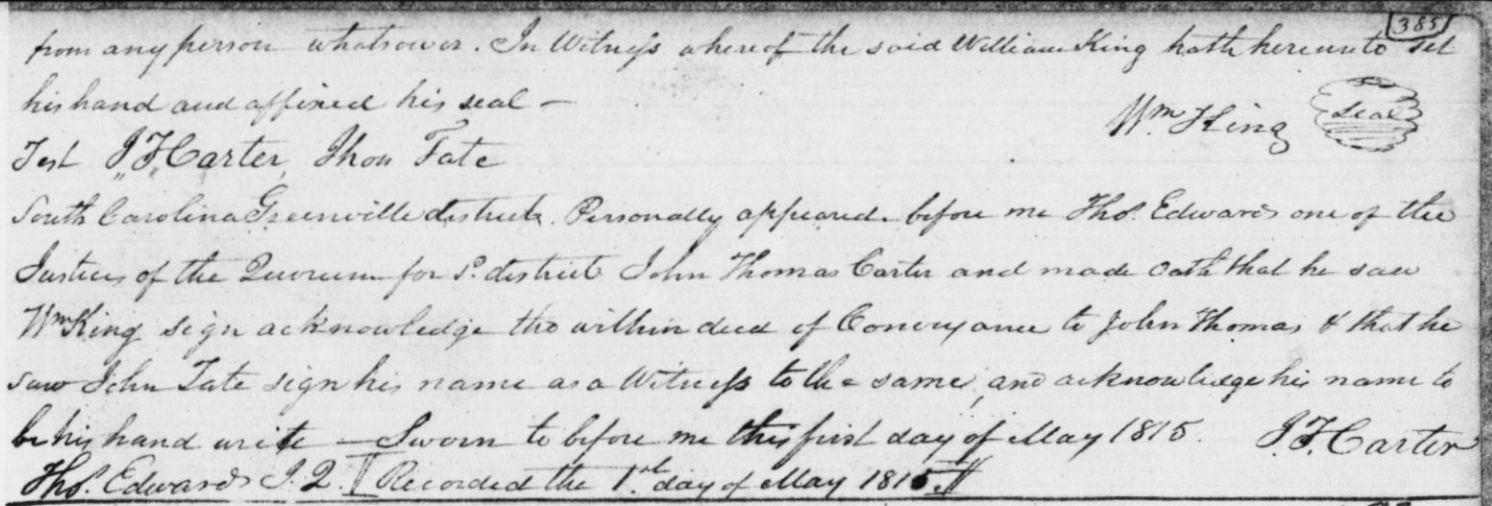 385
from any person whatsoever. In Witness whereof the said William King hath hereunto set
his hand and affixed his seal —
Wm King seal
Test J,, T,, Carter, Jhon Tate
South Carolina Greenville district. Personally appeared before me Thos. Edwards one of the
Justices of the Quorum for sd. district John Thomas Carter and made oath that he saw
Wm King sign acknowledge the within deed of Conveyance to John Thomas & that he
saw John Tate sign his name as a Witness to the same, and acknowledge his name to
be his hand write — Sworn to before me this first day of May 1815. J.T. Carter
Thos. Edwards J.Q. Recorded the 1st. day of May 1815.